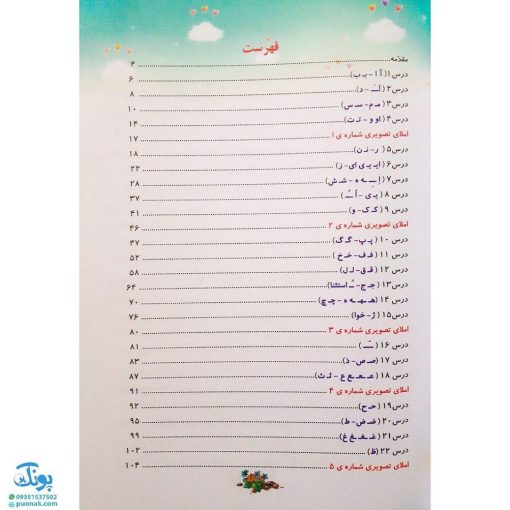 فهرست
مقدمه ........ ۴
درس ۱ (آ ا - بـ ب) ........ ۶
درس ۲ (اَ ـَ - د) ........ ۸
درس ۳ (مـ م - سـ س) ........ ۱۰
درس ۴ (او و - تـ ت) ........ ۱۴
املای تصویری شماره ی ۱ ........ ۱۷
درس ۵ (ر - نـ ن) ........ ۱۸
درس ۶ (ایـ یـ ی ای - ز) ........ ۲۲
درس ۷ (اِ ـِ ـه ه - شـ ش) ........ ۲۸
درس ۸ (یـ ی - اُ ـُ) ........ ۳۷
درس ۹ (کـ ک - و) ........ ۴۱
املای تصویری شماره ی ۲ ........ ۴۶
درس ۱۰ (پـ پ - گـ گ) ........ ۴۷
درس ۱۱ (فـ ف - خـ خ) ........ ۵۲
درس ۱۲ (قـ ق - لـ ل) ........ ۵۸
درس ۱۳ (جـ ج - ـُ استثنا) ........ ۶۴
درس ۱۴ (هـ ـهـ ـه ه - چـ چ) ........ ۷۰
درس ۱۵ (ژ - خوا) ........ ۷۶
املای تصویری شماره ی ۳ ........ ۸۰
درس ۱۶ (ـّ) ........ ۸۱
درس ۱۷ (صـ ص - ذ) ........ ۸۳
درس ۱۸ (عـ ـعـ ـع ع - ثـ ث) ........ ۸۷
املای تصویری شماره ی ۴ ........ ۹۱
درس ۱۹ (حـ ح) ........ ۹۲
درس ۲۰ (ضـ ض - ط) ........ ۹۵
درس ۲۱ (غـ ـغـ ـغ غ) ........ ۹۹
درس ۲۲ (ظ) ........ ۱۰۲
املای تصویری شماره ی ۵ ........ ۱۰۴
پونک
09351537502
puonak.com